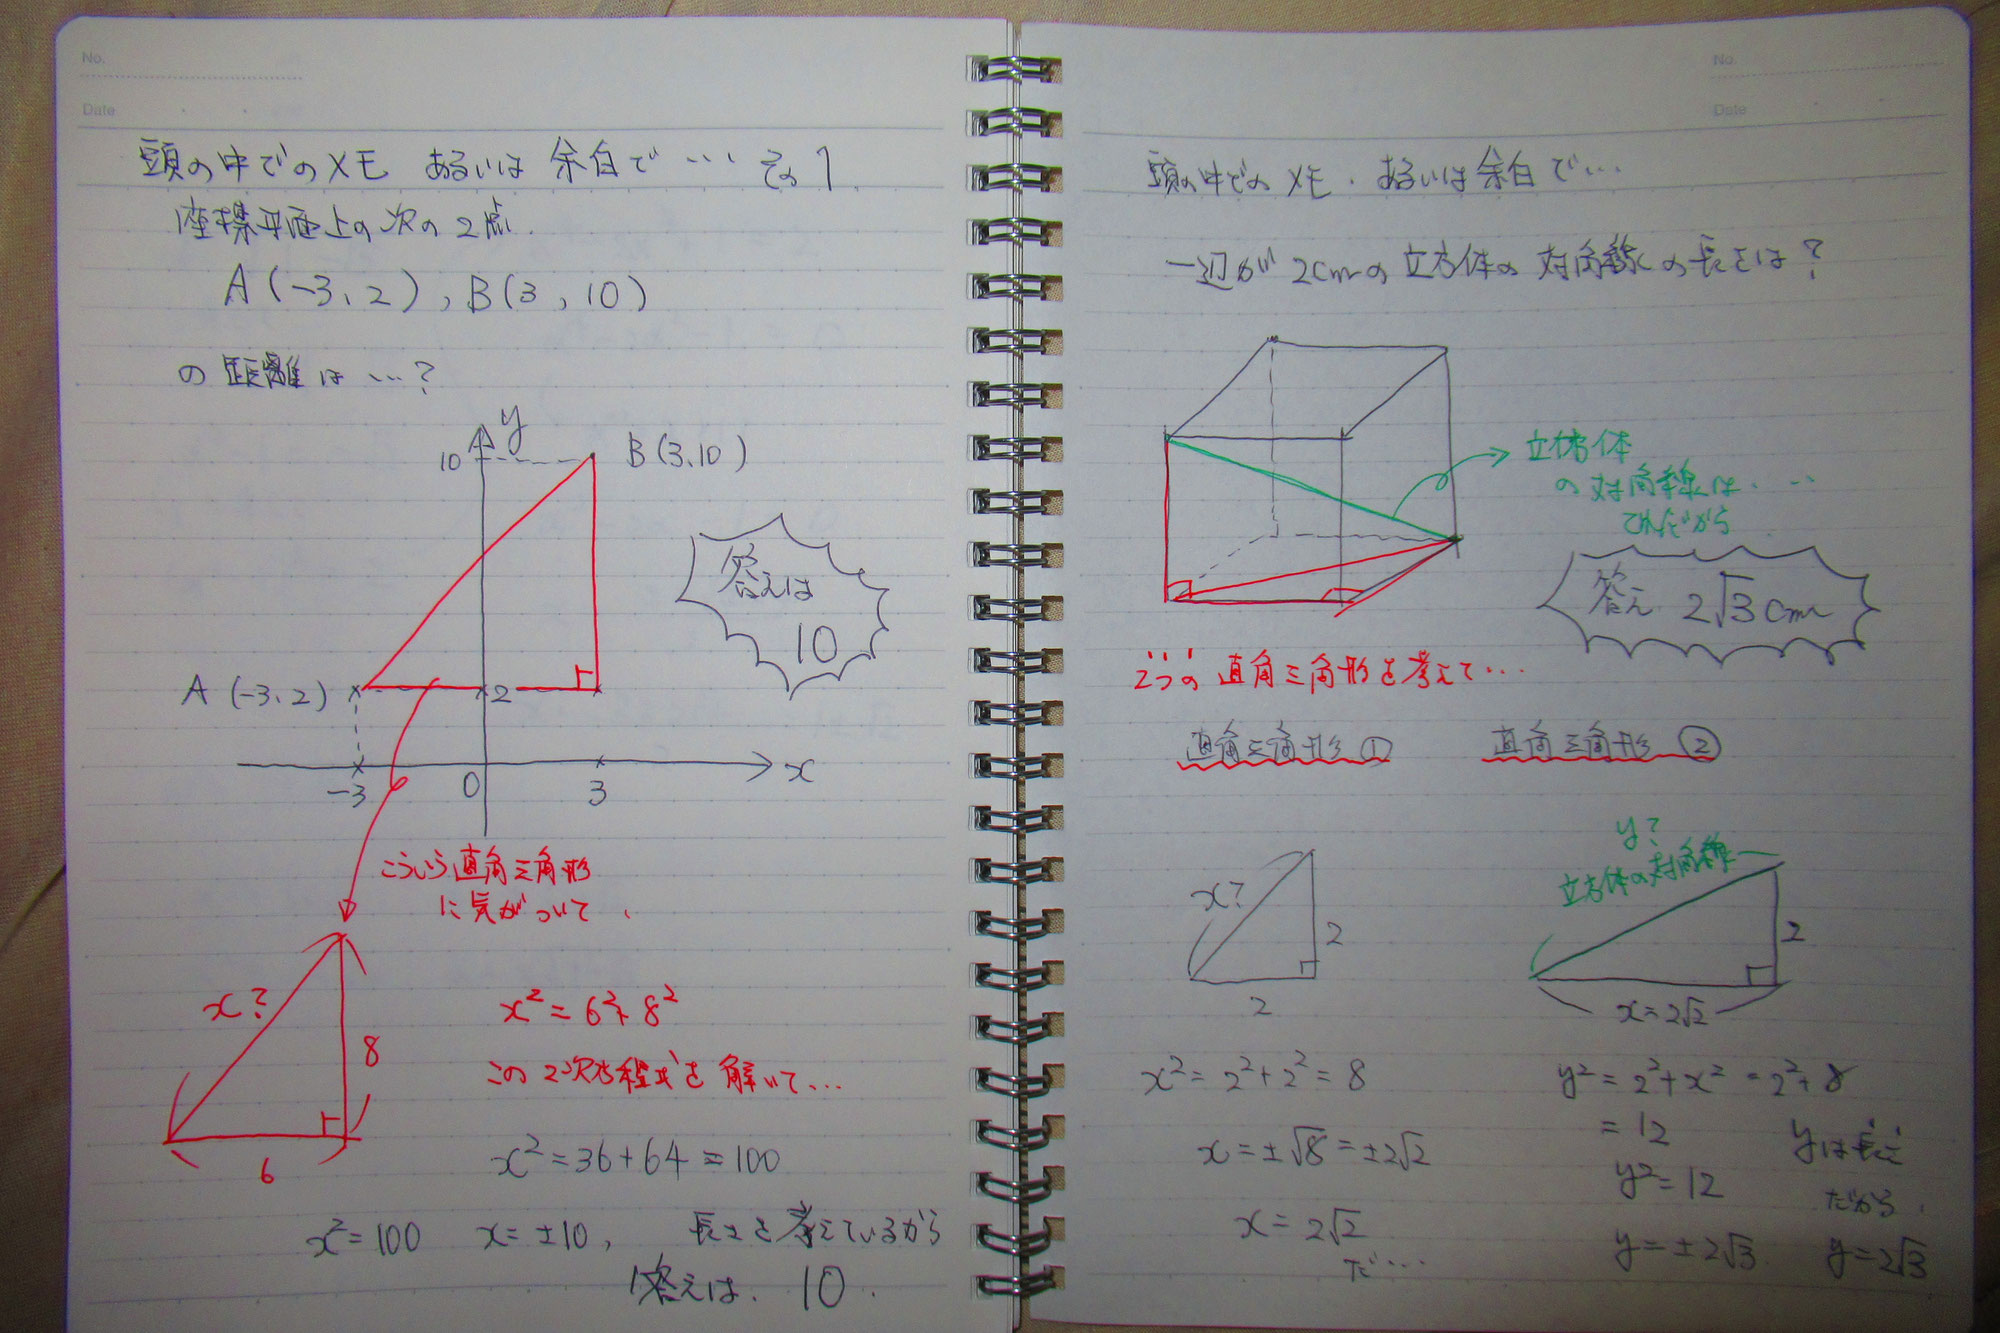 No.
Date
頭の中でのメモ あるいは 余白で … その1
座標平面上の次の2点.
A(-3, 2), B(3, 10)
の距離は…?
y
10
B(3,10)
答えは
10
A(-3,2)
2
-3
0
3
x
こういう直角三角形
に気がついて、
x?
8
6
x²=6²+8²
この2次方程式を解いて…
x²=36+64=100
x²=100 x=±10, 長さを考えているから
答えは、10.
No.
Date
頭の中でのメモ、あるいは余白で…
一辺が2cmの立方体の対角線の長さは?
立方体
の対角線は…
これだから
答え 2√3cm
2つの直角三角形を考えて…
直角三角形① 直角三角形②
x?
2
2
y?
立方体の対角線
2
x=2√2
x²=2²+2²=8
x=±√8=±2√2
x=2√2
だ…
y²=2²+x²=2²+8
=12
y²=12
y=±2√3
yは長さ
だから、
y=2√3